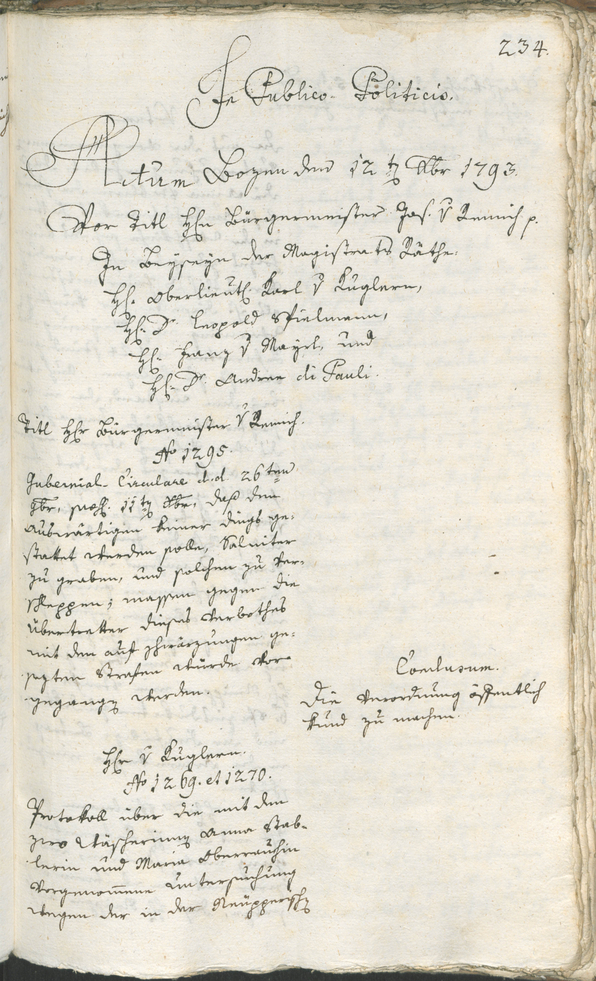 234.
In Publico-Politicis.
Actum Bozen den 12ten Xbr 1793.
Vor Titl Hhn Bürgermeister Jos. v Remich p.
In Beyseyn der Magistrats Räthe.
Hh. Oberlieut. Karl v Kuglern,
Hh. Dr. Leopold Spielmann,
Hh. Franz v Mayrl, und
Hh. Dr. Andree di Pauli.
Titl Hhr Bürgermeister v Remich.
No 1295.
Gubernial-Circulare d.d. 26ten
9br, 11ten Xbr, daß den
Auswärtigen keiner dings ge-
stattet werden solle, Saliniter
zu graben, und solchen zu ver-
schleppen; massen gegen die
Übertretter dieses Verbothes
mit den auf schwärzungen ge-
sezten Strafen würde vor-
gegangen werden.
Conclusum.
Die Verordnung öffentlich
kund zu machen.
Hhr v Kuglern.
No 1269. et 1270.
Protokoll über die mit den
zwo Wäscherinnen Anna Stab-
lerin und Maria Oberrauchin
vorgenommene Untersuchung
wegen der in der